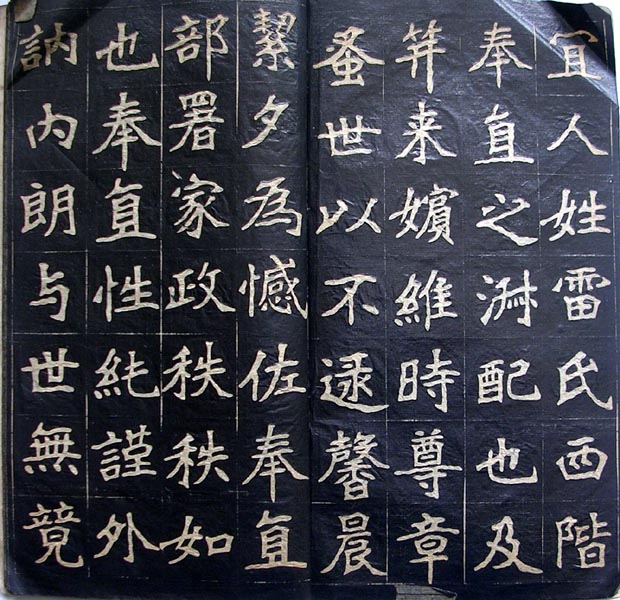 宜人姓雷氏西階
奉直之淋配也及
笄来嬪維時尊章
蚤世以不逮馨晨
絜夕為憾佐奉直
部署家政秩秩如
也奉直性純謹外
訥内朗与世無競